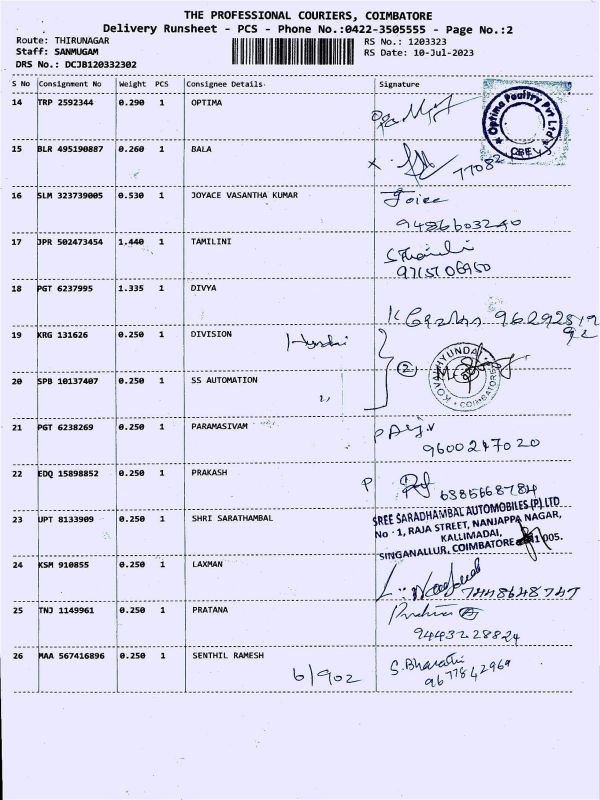 THE PROFESSIONAL COURIERS, COIMBATORE
Delivery Runsheet - PCS - Phone No.:0422-3505555 - Page No.:2
Route: THIRUNAGAR RS No.: 1203323
Staff: SANMUGAM RS Date: 10-Jul-2023
DRS No.: DCJB120332302
S No Consignment No Weight PCS Consignee Details Signature
14 TRP 2592344 0.290 1 OPTIMA
Optima Poultry Pvt Ltd
CBE
15 BLR 495190887 0.260 1 BALA
77082
16 SLM 323739005 0.530 1 JOYACE VASANTHA KUMAR
9486603240
17 JPR 502473454 1.440 1 TAMILINI
9715706950
18 PGT 6237995 1.335 1 DIVYA
19 KRG 131626 0.250 1 DIVISION
2
KOVAI HYUNDAI
COIMBATORE
20 SPB 10137407 0.250 1 SS AUTOMATION
21 PGT 6238269 0.250 1 PARAMASIVAM
9600247020
22 EDQ 15898852 0.250 1 PRAKASH
6385668784
23 UPT 8133909 0.250 1 SHRI SARATHAMBAL
SREE SARADHAMBAL AUTOMOBILES (P) LTD
No - 1, RAJA STREET, NANJAPPA NAGAR,
KALLIMADAI,
SINGANALLUR, COIMBATORE
24 KSM 910855 0.250 1 LAXMAN
7448648747
25 TNJ 1149961 0.250 1 PRATANA
9443228824
26 MAA 567416896 0.250 1 SENTHIL RAMESH
6/902
S. Bharathi
9677842969